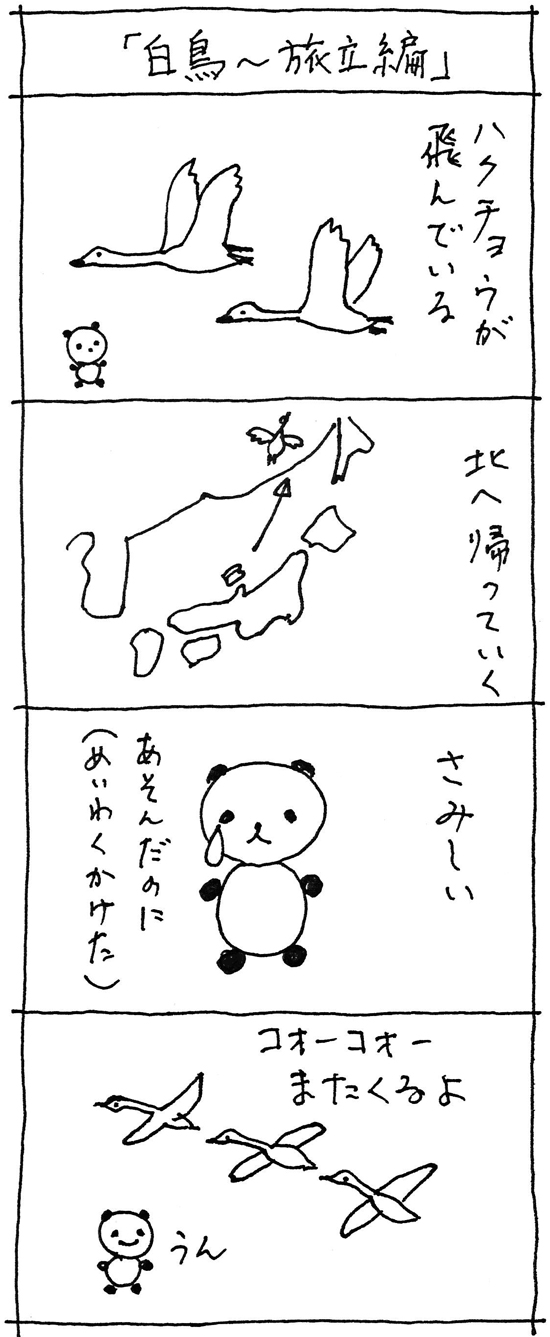 「白鳥～旅立編」
ハクチョウが
飛んでいる
北へ帰っていく
さみしい
あそんだのに
(めいわくかけた)
コオーコオー
またくるよ
うん